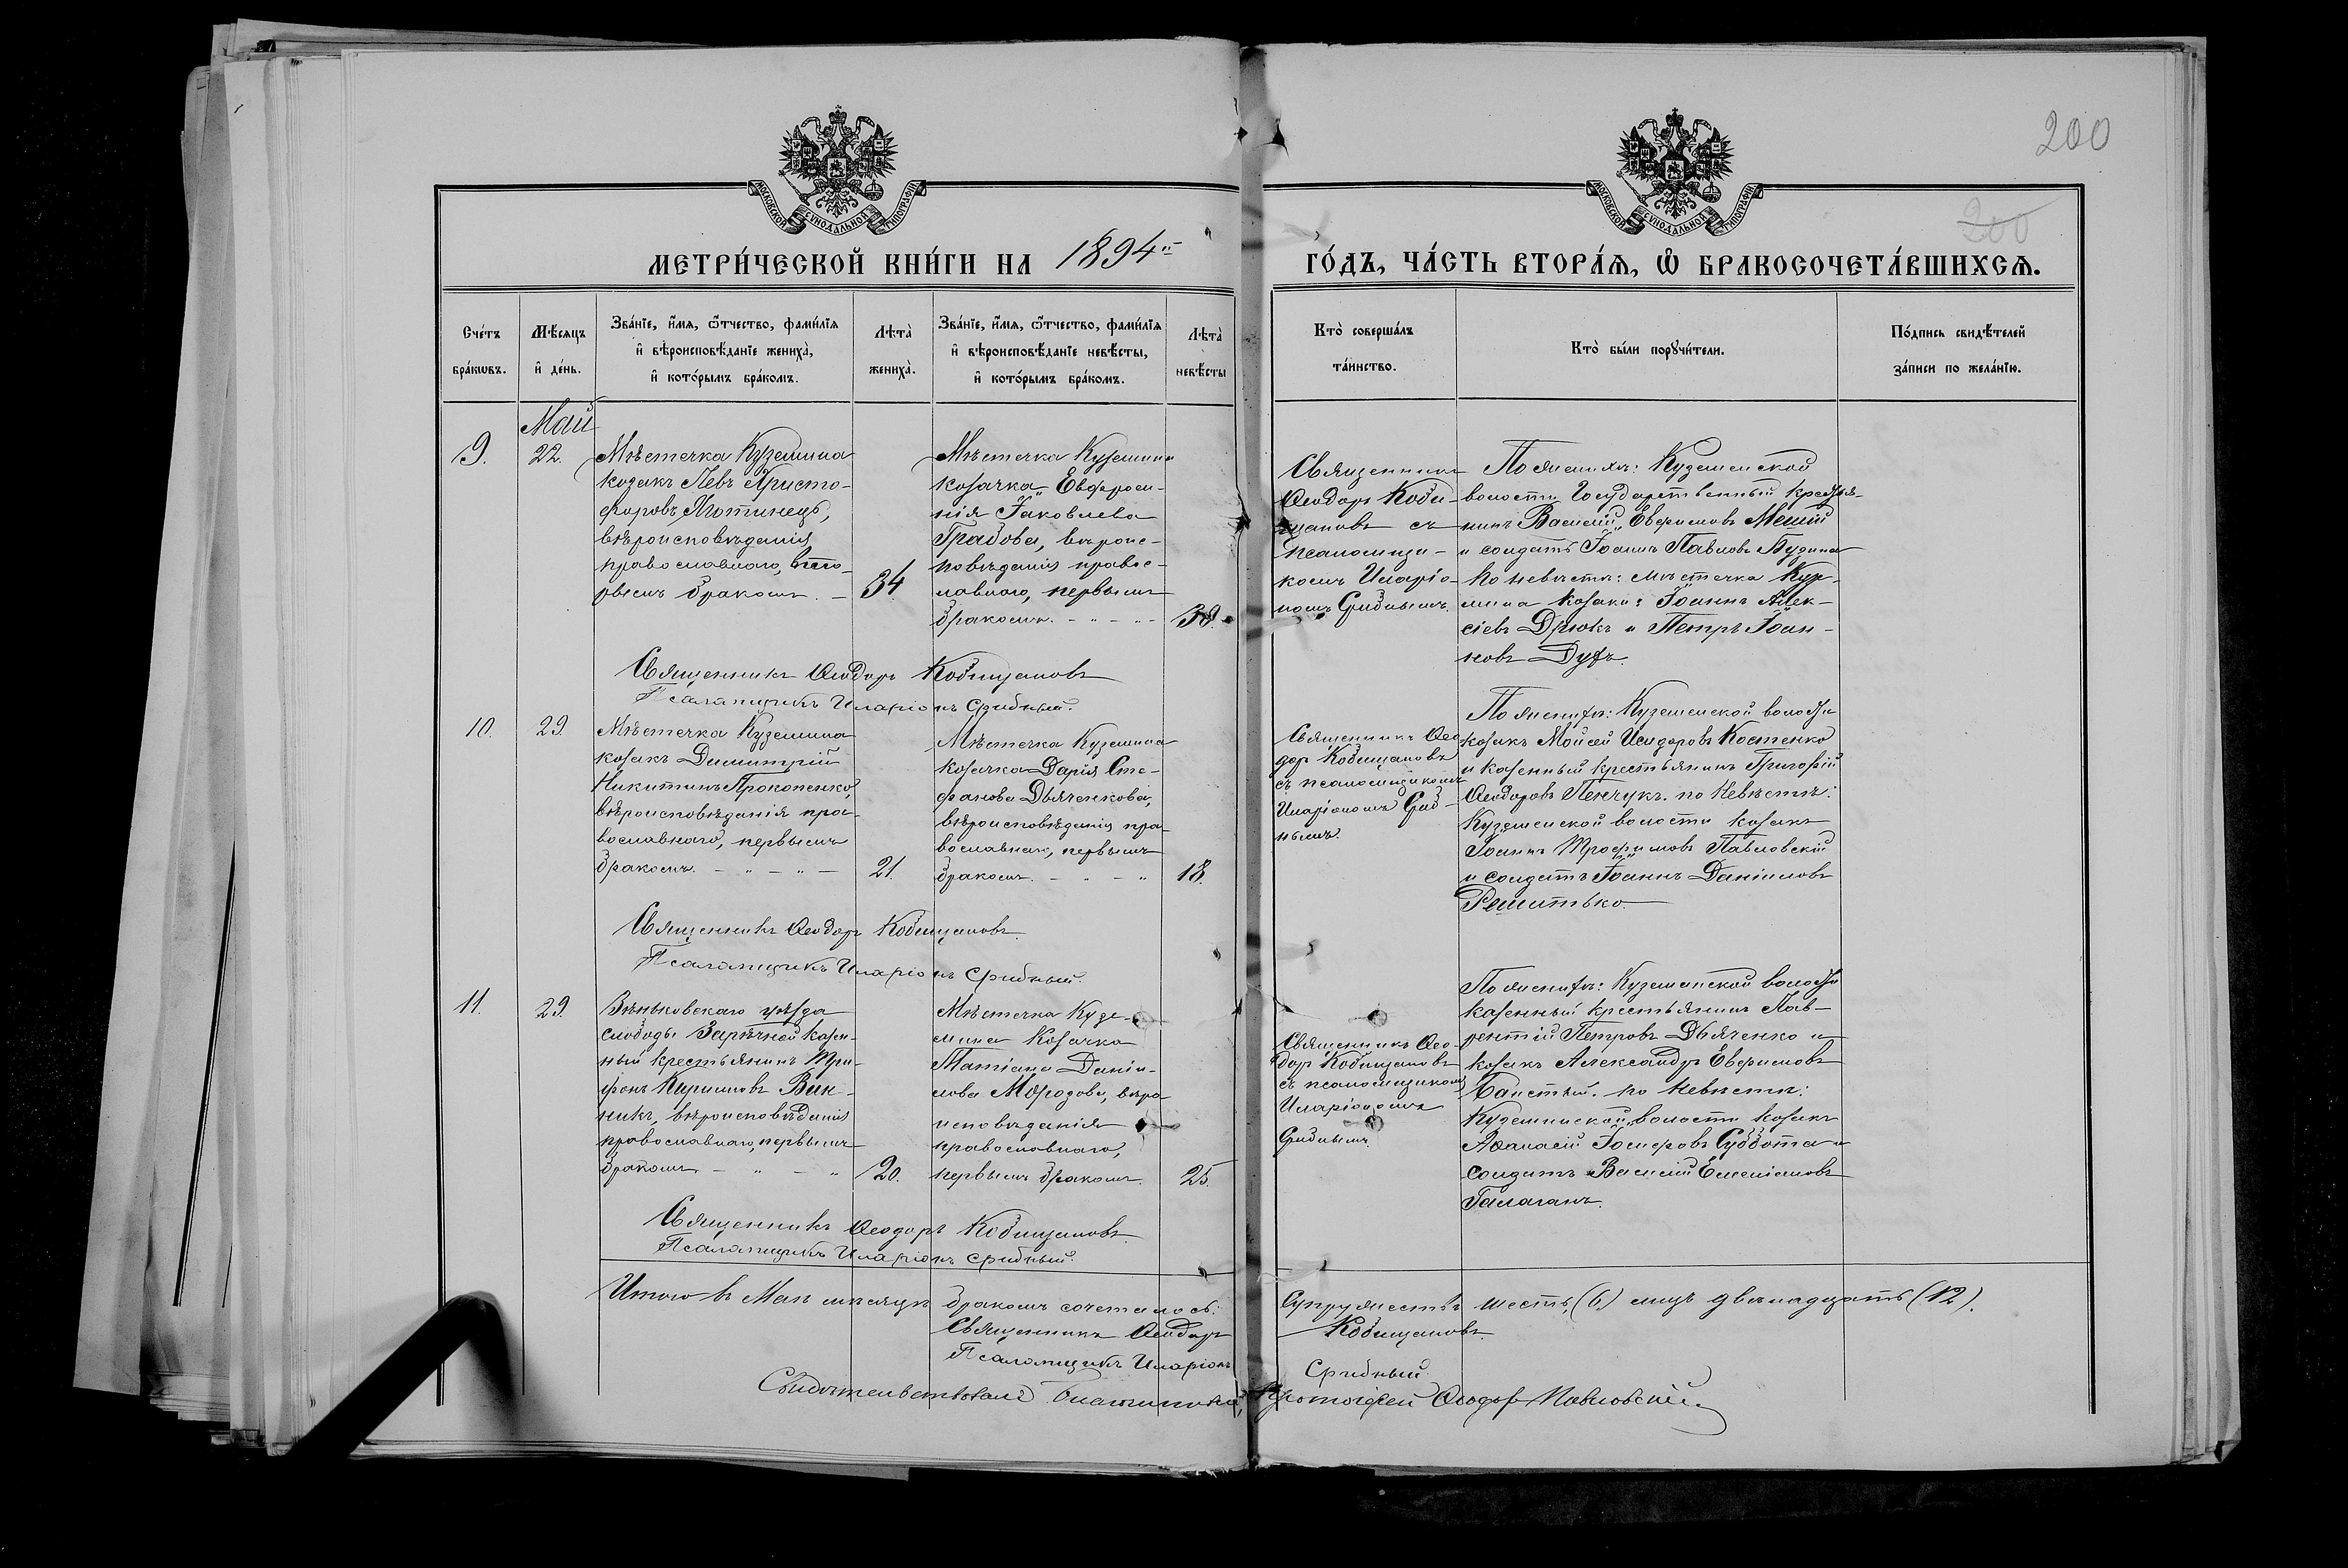 200
200
МОСКОВСКОЙ СѴНОДАЛЬНОЙ ТИПОГРАФІИ
МОСКОВСКОЙ СѴНОДАЛЬНОЙ ТИПОГРАФІИ
МЕТРИ́ЧЕСКОЙ КНИ́ГИ НА 1894й
ГО́ДЪ, ЧА́СТЬ ВТОРА́Ѧ, Ѽ БРАКОСОЧЕТА́ВШИХСѦ.
Сче́тъ бра́кѡвъ.
Мѣ́сяцъ и҆ де́нь.
Зва́нїе, и҆́мѧ, ѻ҆́тчество, фами́лїѧ
и҆ вѣроисповѣ́данїе жениха̀,
и҆ кото́рымъ бра́комъ.
Лѣта̀ жениха̀.
Зва́нїе, и҆́мѧ, ѻ҆́тчество, фами́лїѧ
и҆ вѣроисповѣ́данїе невѣ́сты,
и҆ кото́рымъ бра́комъ.
Лѣта̀ невѣ́сты
Кто̀ соверша́лъ
та́инство.
Кто̀ бы́ли порꙋчи́тели.
По́дпись свидѣ́телей
за́писи по жела́нїю.
Май
9.
22.
Мѣстечка Куземина
козакъ Левъ Христо-
форовъ
вѣроисповѣданія
православнаго, вто-
рымъ бракомъ. —
34.
Мѣстечка Куземина
козачка Евфроси-
нія Іаковлева
Градова, вѣроис-
повѣданія правос-
лавнаго, первымъ
бракомъ. - " - " -
38.
Священникъ
Ѳеодоръ Коби-
щановъ съ
псаломщи-
комъ Иларіо-
номъ Сриднымъ.
По женихѣ: Куземенской
волости Государственный крестья-
нинъ Василій Евфимовъ
и солдатъ Іоаннъ Павловъ
По невѣстѣ: мѣстечка Кузе-
мина козаки: Іоаннъ Алек-
сіевъ Дрюкъ и Петръ Іоан-
новъ
Священникъ Ѳеодоръ Кобищановъ
Псаломщикъ Иларіонъ Срибный.
10.
29.
Мѣстечка Куземина
козакъ Димитрій
Никитинъ Прокопенко,
вѣроисповѣданія пра-
вославнаго, первымъ
бракомъ. — " — " —
21.
Мѣстечка Куземина
козачка Дарія Сте-
фанова Дьяченкова,
вѣроисповѣданія пра-
вославнаго, первымъ
бракомъ. — " — "
18.
Священникъ Ѳео-
доръ Кобищановъ
съ псаломщикомъ
Иларіономъ Сриб-
нымъ.
По женихѣ: Куземенской волости
козакъ Моисей Исидоровъ Костенко
и казенный крестьянинъ Григорій
Ѳеодоровъ Пенчукъ. по невѣстѣ:
Куземенской волости козакъ
Іоаннъ Трофимовъ Павловскій
и солдатъ Іоаннъ Даніиловъ
Решитько.
Священникъ Ѳеодоръ Кобищановъ.
Псаломщикъ Иларіонъ Срибный.
11.
29.
Зѣньковскаго уѣзда
слободы Зарѣчной казен-
ный крестьянинъ Три-
фонъ Кирилловъ Вин-
никъ, вѣроисповѣданія
православнаго, первымъ
бракомъ. — " — "
20.
Мѣстечка Кузе-
мина Козачка
Татіана Даніи-
лова вѣро
исповѣданія
православнаго,
первымъ бракомъ.
25.
Священникъ Ѳео-
доръ Кобищановъ
съ псаломщикомъ
Иларіономъ
Срибнымъ.
По женихѣ: Куземенской волости
казенный крестьянинъ Лав-
рентій Петровъ Дьяченко и
козакъ Александръ Евфимовъ
по невѣстѣ:
Куземинской волости козакъ
Аѳанасій Суббота и
солдатъ Василій Емеліановъ
Галаганъ.
Священникъ Ѳеодоръ Кобищановъ.
Псаломщикъ Иларіонъ Срибный.
Итого въ Маѣ мѣсяцѣ бракомъ сочеталось: Супружествъ шесть (6) лицъ двѣнадцать (12).
Священникъ Ѳеодоръ Кобищановъ.
Псаломщикъ Иларіонъ Срибный.
Свидѣтельствовалъ Благочинный, Протоіерей Ѳеодоръ Павловскій.